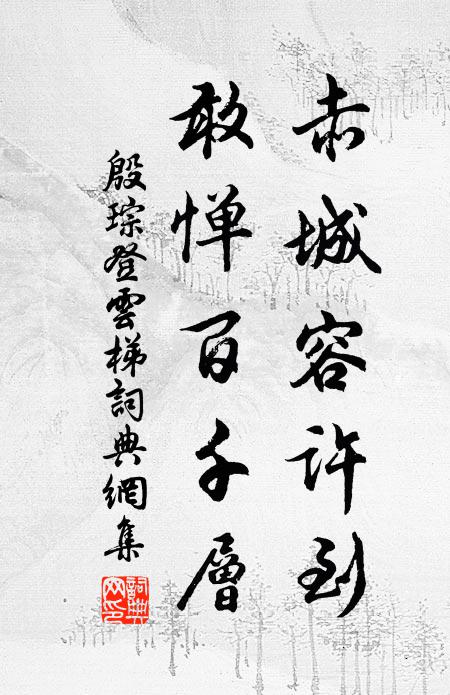 赤城容許到
敢惮百千層
殷琮登雲梯詞典網集
詞典
网印